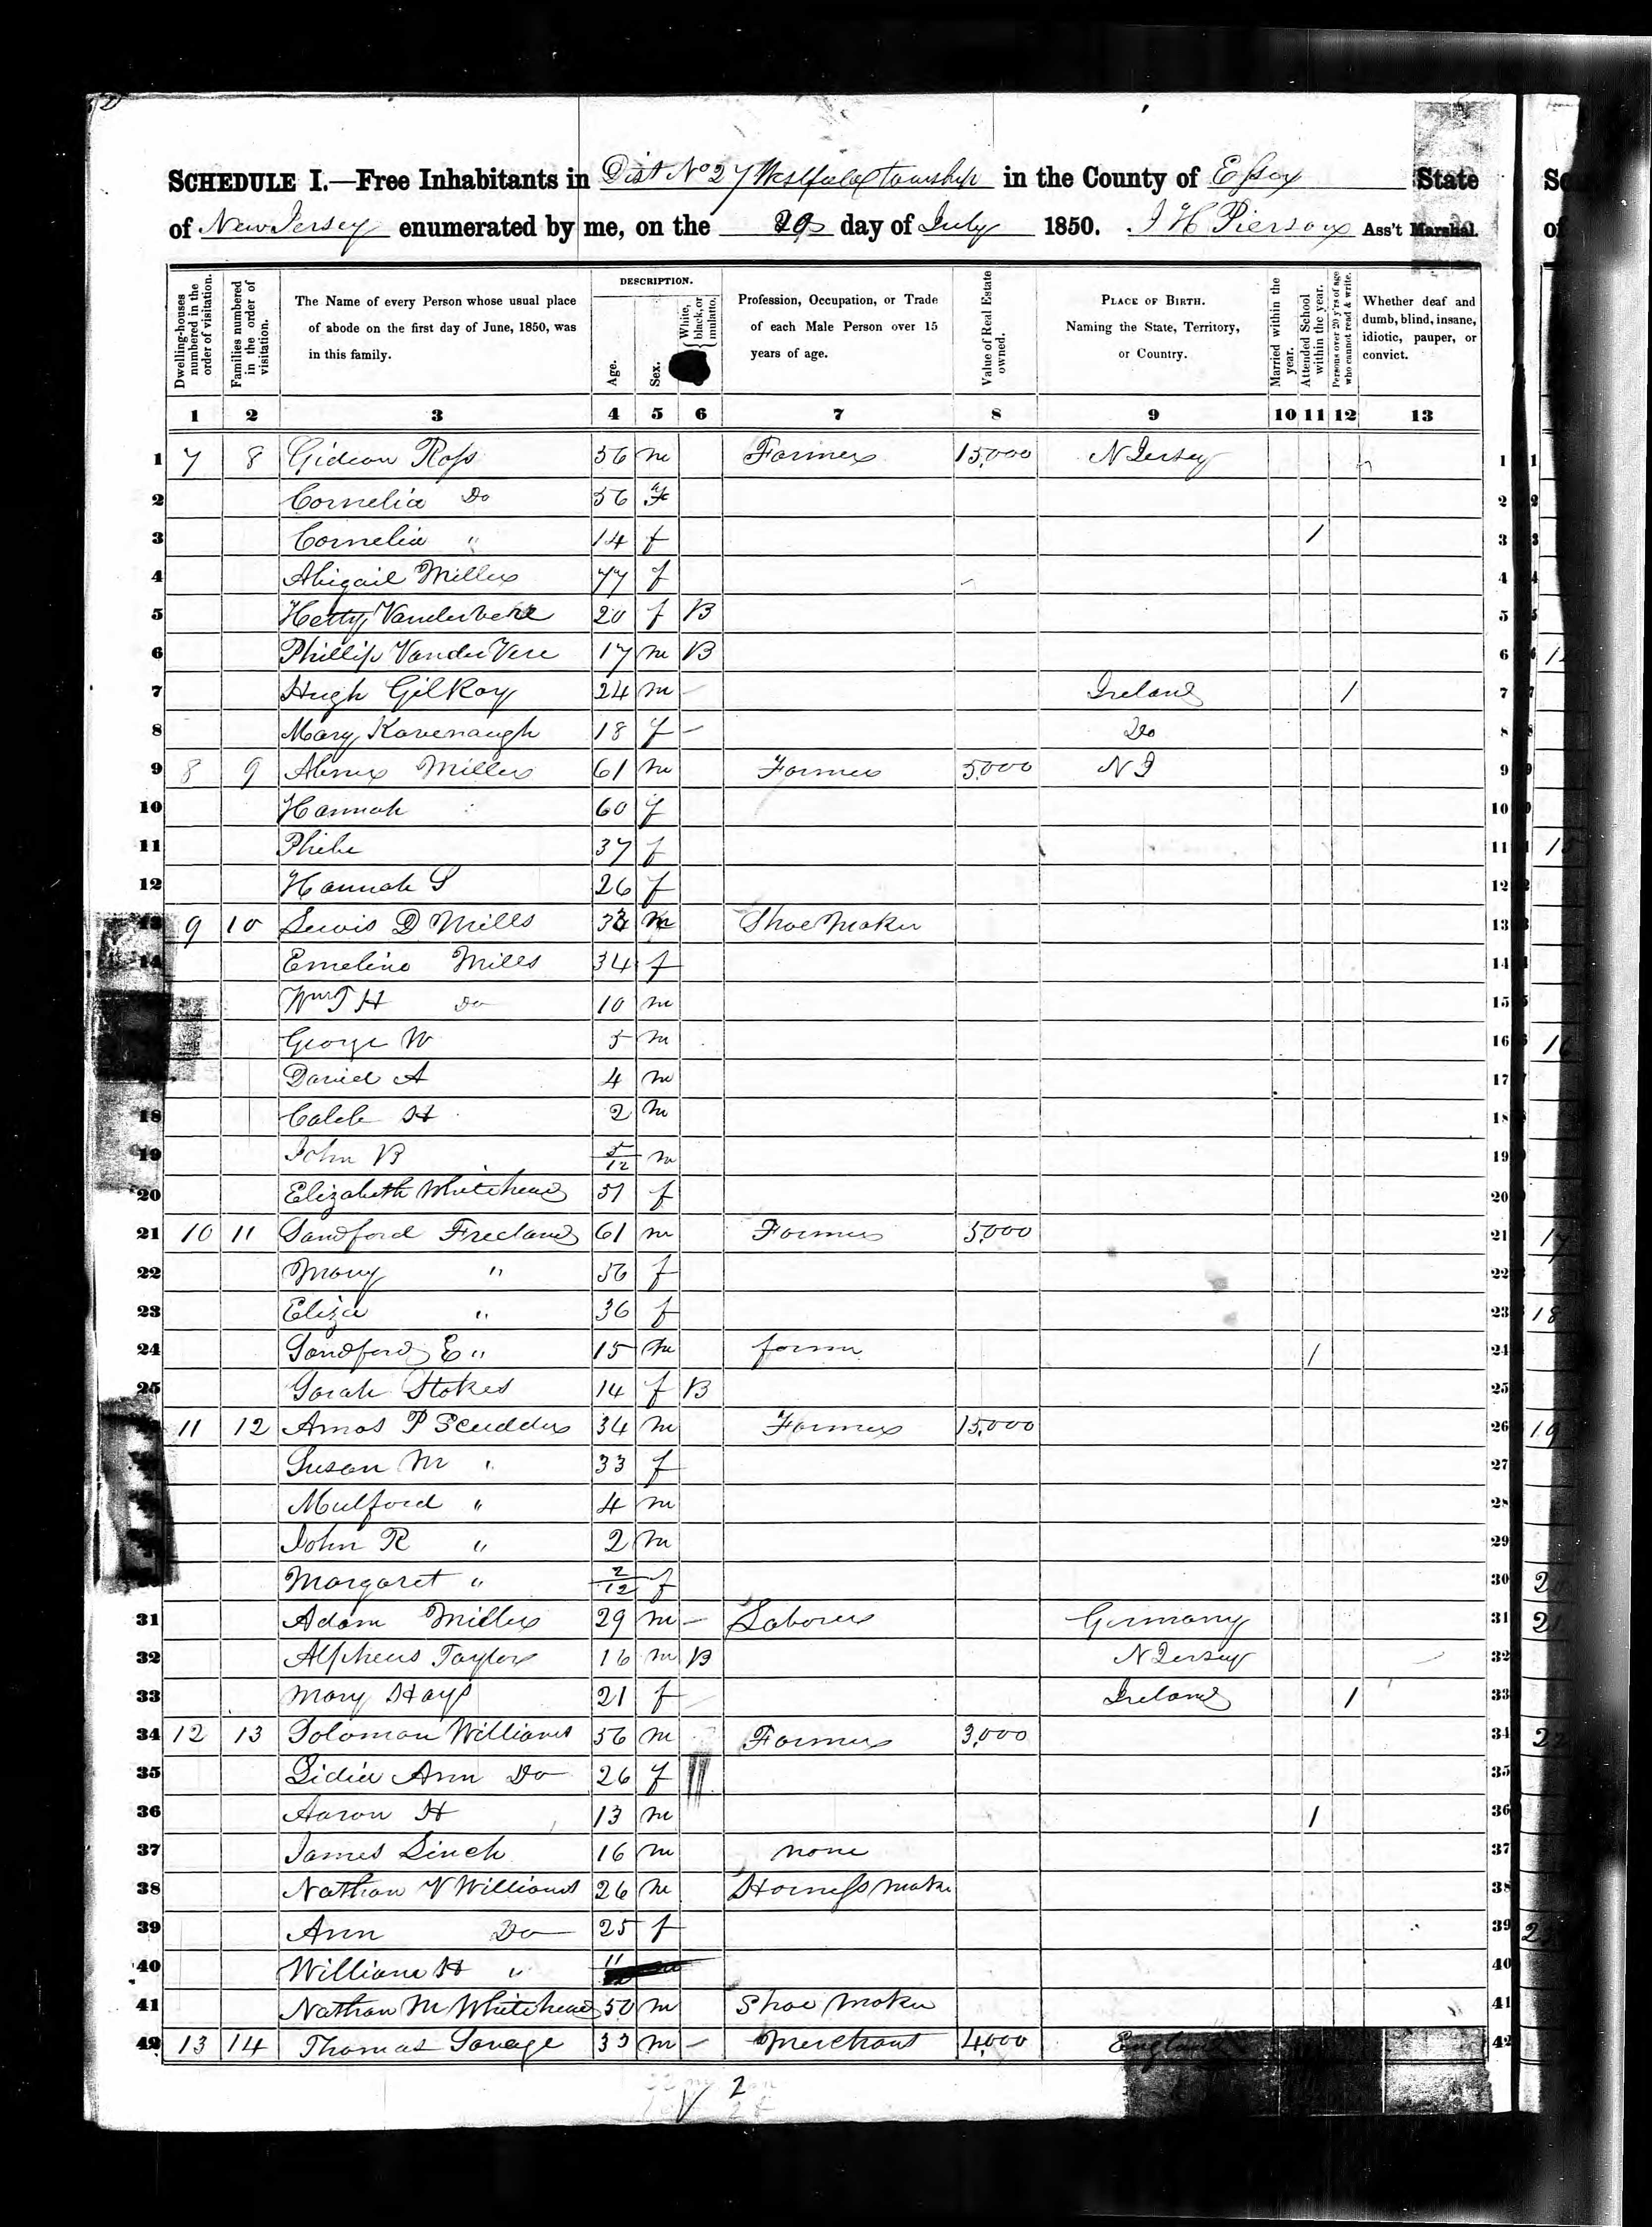 SCHEDULE I.—Free Inhabitants in Dist No 27 Westfield township in the County of Essex State
of New Jersey enumerated by me, on the day of July 1850. J H Pierson Ass't Marshal.
Dwelling-houses numbered in the order of visitation.
Families numbered in the order of visitation.
The Name of every Person whose usual place of abode on the first day of June, 1850, was in this family.
DESCRIPTION.
Age.
Sex.
White, black, or mulatto.
Profession, Occupation, or Trade of each Male Person over 15 years of age.
Value of Real Estate owned.
PLACE OF BIRTH. Naming the State, Territory, or Country.
Married within the year.
Attended School within the year.
Persons over 20 y'rs of age who cannot read & write.
Whether deaf and dumb, blind, insane, idiotic, pauper, or convict.
1 2 3 4 5 6 7 8 9 10 11 12 13
1 7 8 Gideon Ross 56 m Farmer 15,000 N Jersey 1
2 Cornelia Do 56 f 2
3 Cornelia " 14 f / 3
4 Abigail Miller 77 f 4
5 Hetty 20 f B 5
6 Phillip Vander Vere 17 m B 6
7 Hugh GilRoy 24 m – Ireland / 7
8 Mary Kavenaugh 18 f – Do 8
9 8 9 Abner Miller 61 m Farmer 5,000 N J 9
10 Hannah 60 f 10
11 Phebe 37 f 11
12 Hannah S 26 f 12
13 9 10 Lewis D Mills m Shoe Maker 13
14 Emeline Mills 34 f 14
Wm H Do 10 m 15
George W 5 m 16
Daniel A 4 m 17
18 Caleb H 2 m 18
19 John B 5/12 m 19
20 Elizabeth Whitehead 51 f 20
21 10 11 Sandford Freeland 61 m Farmer 5,000 21
22 Mary " 56 f 22
23 Eliza " 36 f 23
24 Sandford E " 15 m farmer / 24
25 Sarah Stokes 14 f B 25
11 12 Amos P Scudder 34 m Farmer 15,000 26
Susan M " 33 f 27
Mulford " 4 m 28
John R " 2 m 29
Margaret " 2/12 f 30
31 Adam Miller 29 m – Laborer Germany 31
32 Alpheus Taylor 16 m B N Jersey 32
33 Mary Hays 21 f – Ireland / 33
34 12 13 Solomon Williams 56 m Farmer 3,000 34
35 Lidia Ann Do 26 f 35
36 Aaron H 13 m / 36
37 James Linch 16 m none 37
38 Nathan V Williams 26 m Harness Make 38
39 Ann Do 25 f 39
40 William H " 40
41 Nathan M Whitehead 50 m Shoe Maker 41
42 13 14 Thomas Savage 33 m – Merchant 4,000 England 42
2